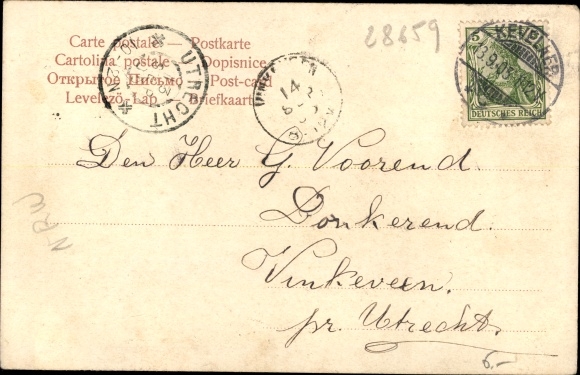 28659
Carte postale — Postkarte
Cartolina postale — Dopisnice
Открытое письмо — Post-card
Levelező-Lap — Briefkaart
UTRECHT
KEVELAER
DEUTSCHES REICH
Den Heer G. Voorend.
Donkerend.
Vinkeveen.
pr. Utrecht.
NRW
6,-